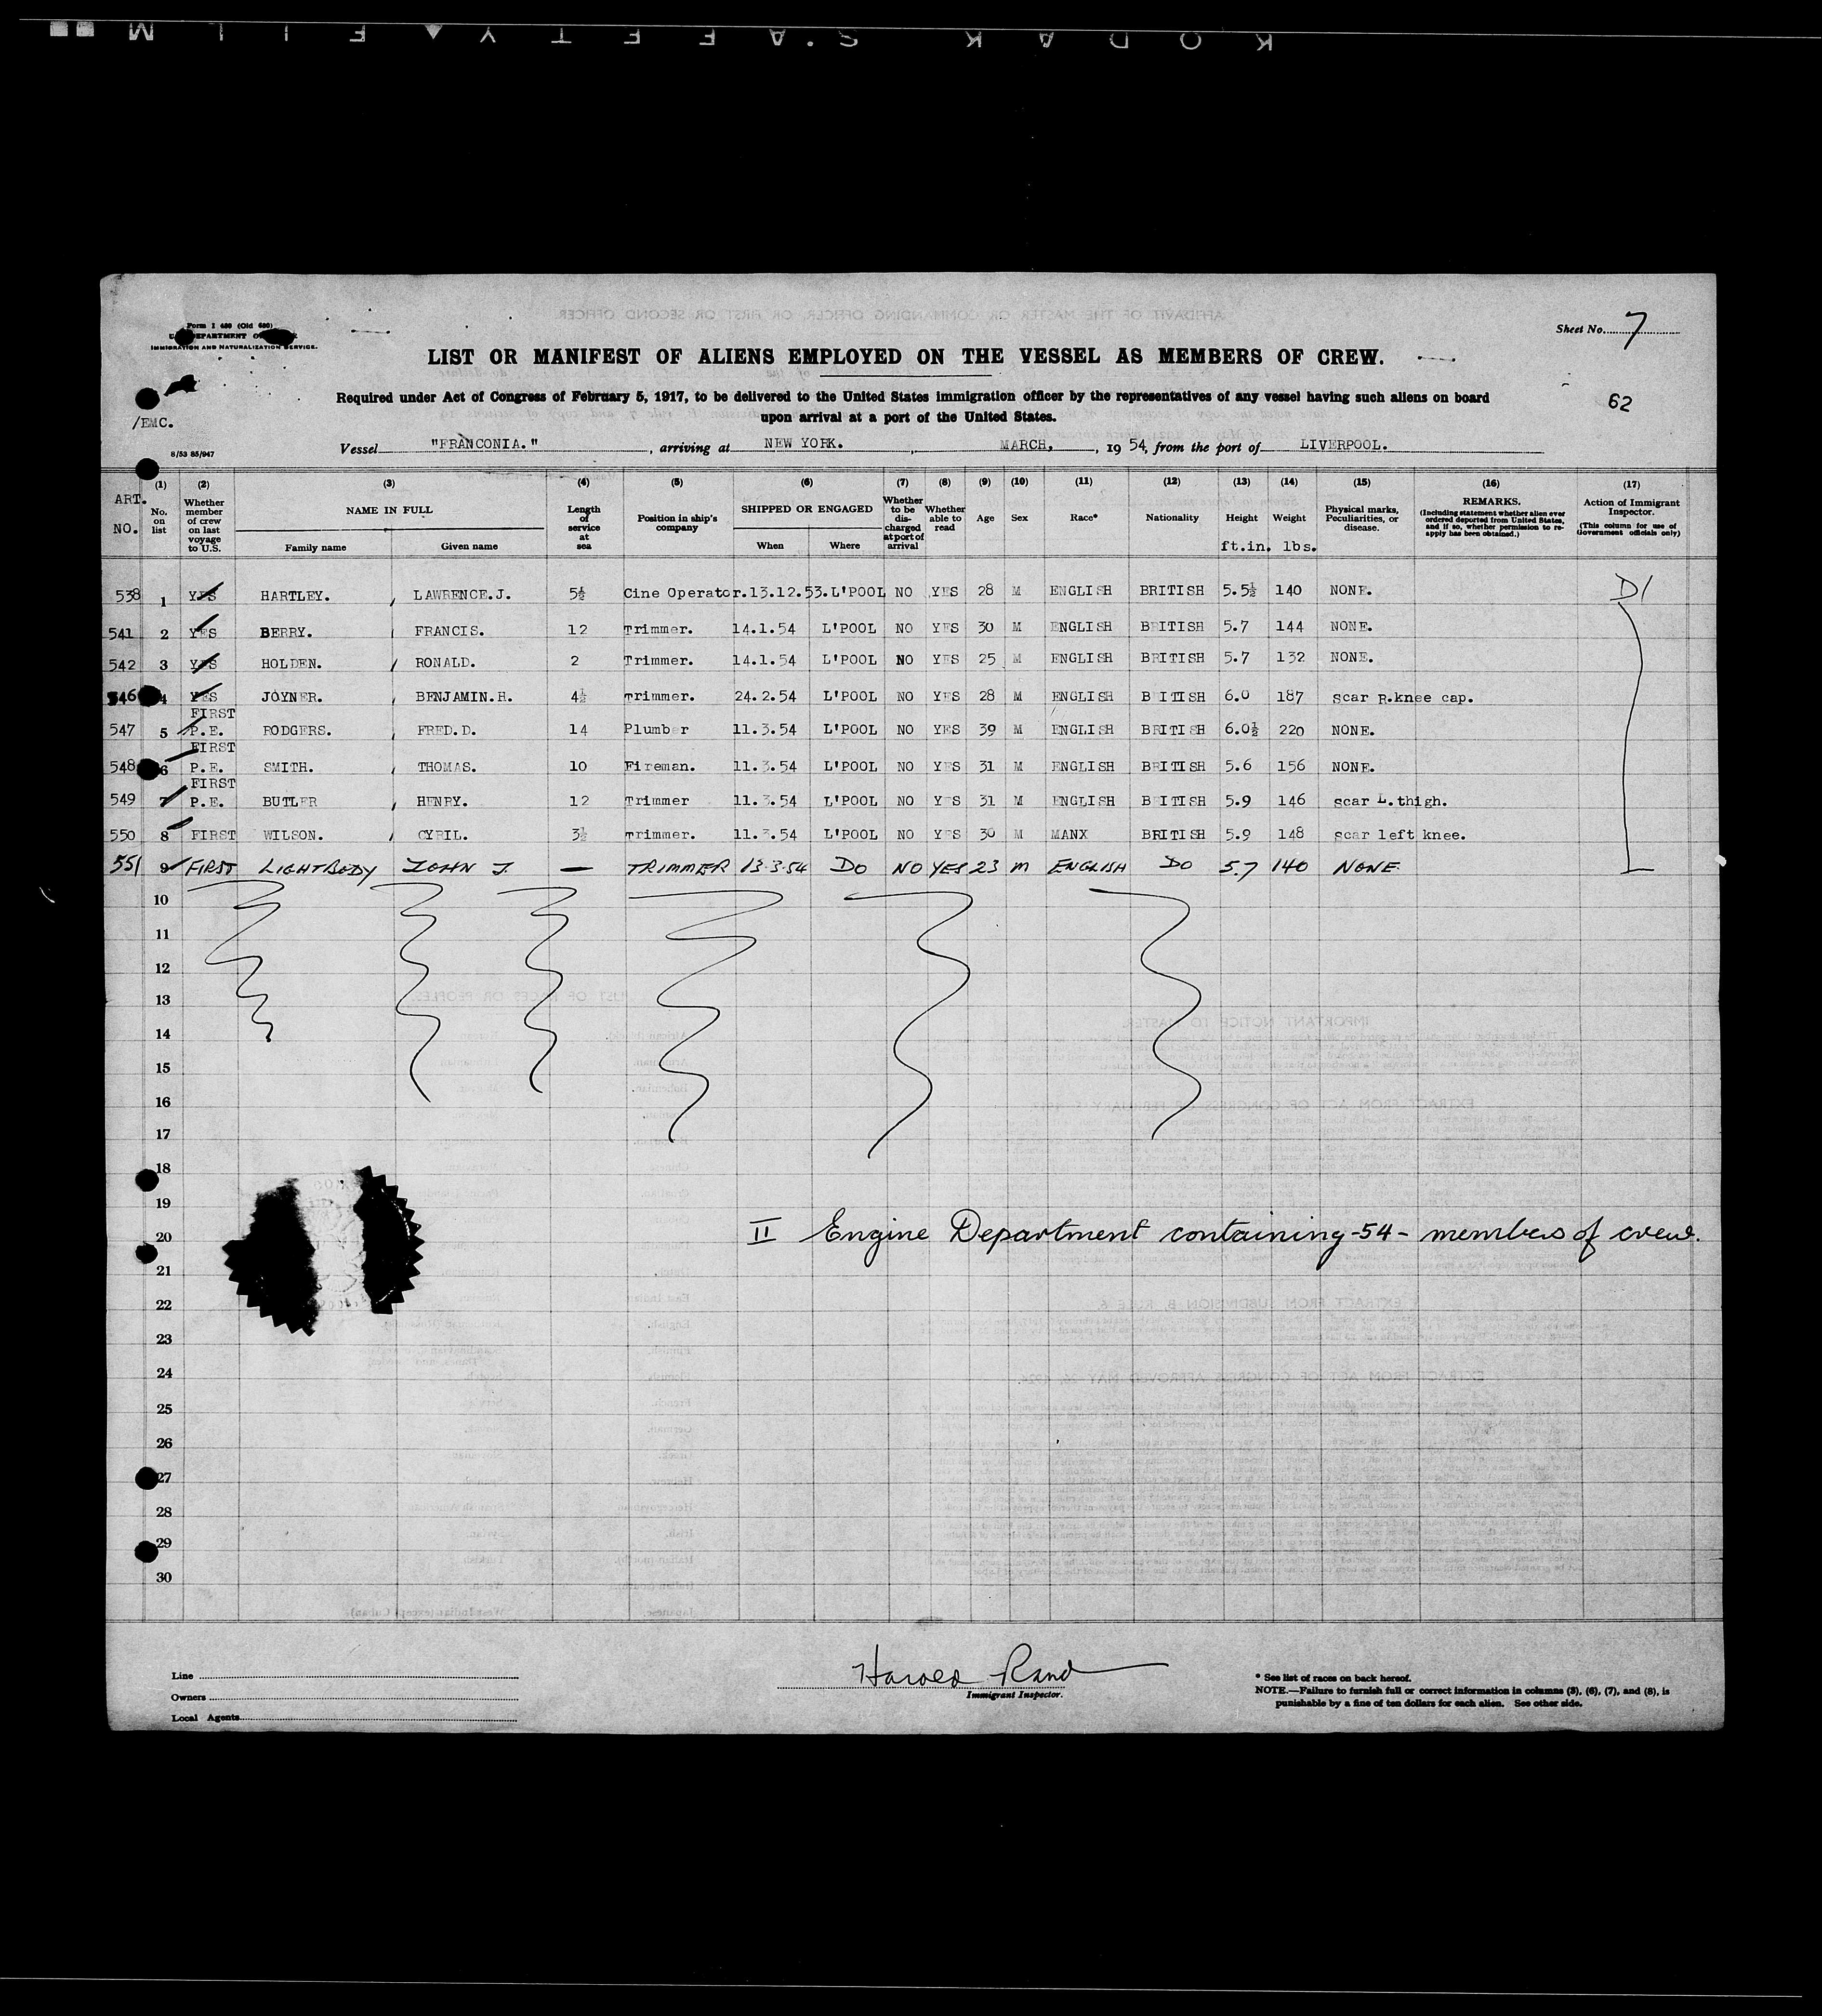 KODAK S.AFETY▲FILM
Form I 480 (Old 680)
U.S. DEPARTMENT OF
IMMIGRATION AND NATURALIZATION SERVICE.
Sheet No. 7
LIST OR MANIFEST OF ALIENS EMPLOYED ON THE VESSEL AS MEMBERS OF CREW.
Required under Act of Congress of February 5, 1917, to be delivered to the United States immigration officer by the representatives of any vessel having such aliens on board
upon arrival at a port of the United States.
62
/EMC.
8/53 85/947
Vessel "FRANCONIA." , arriving at NEW YORK. , MARCH, , 19 54, from the port of LIVERPOOL.
ART. NO. (1) No. on list (2) Whether member of crew on last voyage to U.S. (3) NAME IN FULL Family name Given name (4) Length of service at sea (5) Position in ship's company (6) SHIPPED OR ENGAGED When Where (7) Whether to be discharged at port of arrival (8) Whether able to read (9) Age (10) Sex (11) Race* (12) Nationality (13) Height ft.in. (14) Weight lbs. (15) Physical marks, Peculiarities, or disease. (16) REMARKS. (Including statement whether alien ever ordered deported from United States, and if so, whether permission to re-apply has been obtained.) (17) Action of Immigrant Inspector. (This column for use of Government officials only)
538 1 YES HARTLEY. , LAWRENCE.J. 5½ Cine Operator. 13.12.53. L'POOL NO YES 28 M ENGLISH BRITISH 5.5½ 140 NONE. D1
541 2 YES BERRY. , FRANCIS. 12 Trimmer. 14.1.54 L'POOL NO YES 30 M ENGLISH BRITISH 5.7 144 NONE.
542 3 YES HOLDEN. , RONALD. 2 Trimmer. 14.1.54 L'POOL NO YES 25 M ENGLISH BRITISH 5.7 132 NONE.
546 4 YES JOYNER. , BENJAMIN.H. 4½ Trimmer. 24.2.54 L'POOL NO YES 28 M ENGLISH BRITISH 6.0 187 scar R.knee cap.
547 5 FIRST P.E. RODGERS. , FRED.D. 14 Plumber 11.3.54 L'POOL NO YES 39 M ENGLISH BRITISH 6.0½ 220 NONE.
548 6 FIRST P.E. SMITH. , THOMAS. 10 Fireman. 11.3.54 L'POOL NO YES 31 M ENGLISH BRITISH 5.6 156 NONE.
549 7 FIRST P.E. BUTLER , HENRY. 12 Trimmer 11.3.54 L'POOL NO YES 31 M ENGLISH BRITISH 5.9 146 scar L.thigh.
550 8 FIRST WILSON. , CYRIL. 3½ Trimmer. 11.3.54 L'POOL NO YES 30 M MANX BRITISH 5.9 148 scar left knee.
551 9 FIRST LIGHTBODY JOHN J. — TRIMMER 13.3.54 DO NO YES 23 M ENGLISH DO 5.7 140 NONE.
10
11
12
13
14
15
16
17
18
19
20 II Engine Department containing -54- members of crew.
21
22
23
24
25
26
27
28
29
30
Harold Rand
Immigrant Inspector.
Line
Owners
Local Agents
* See list of races on back hereof.
NOTE.—Failure to furnish full or correct information in columns (3), (6), (7), and (8), is
punishable by a fine of ten dollars for each alien. See other side.